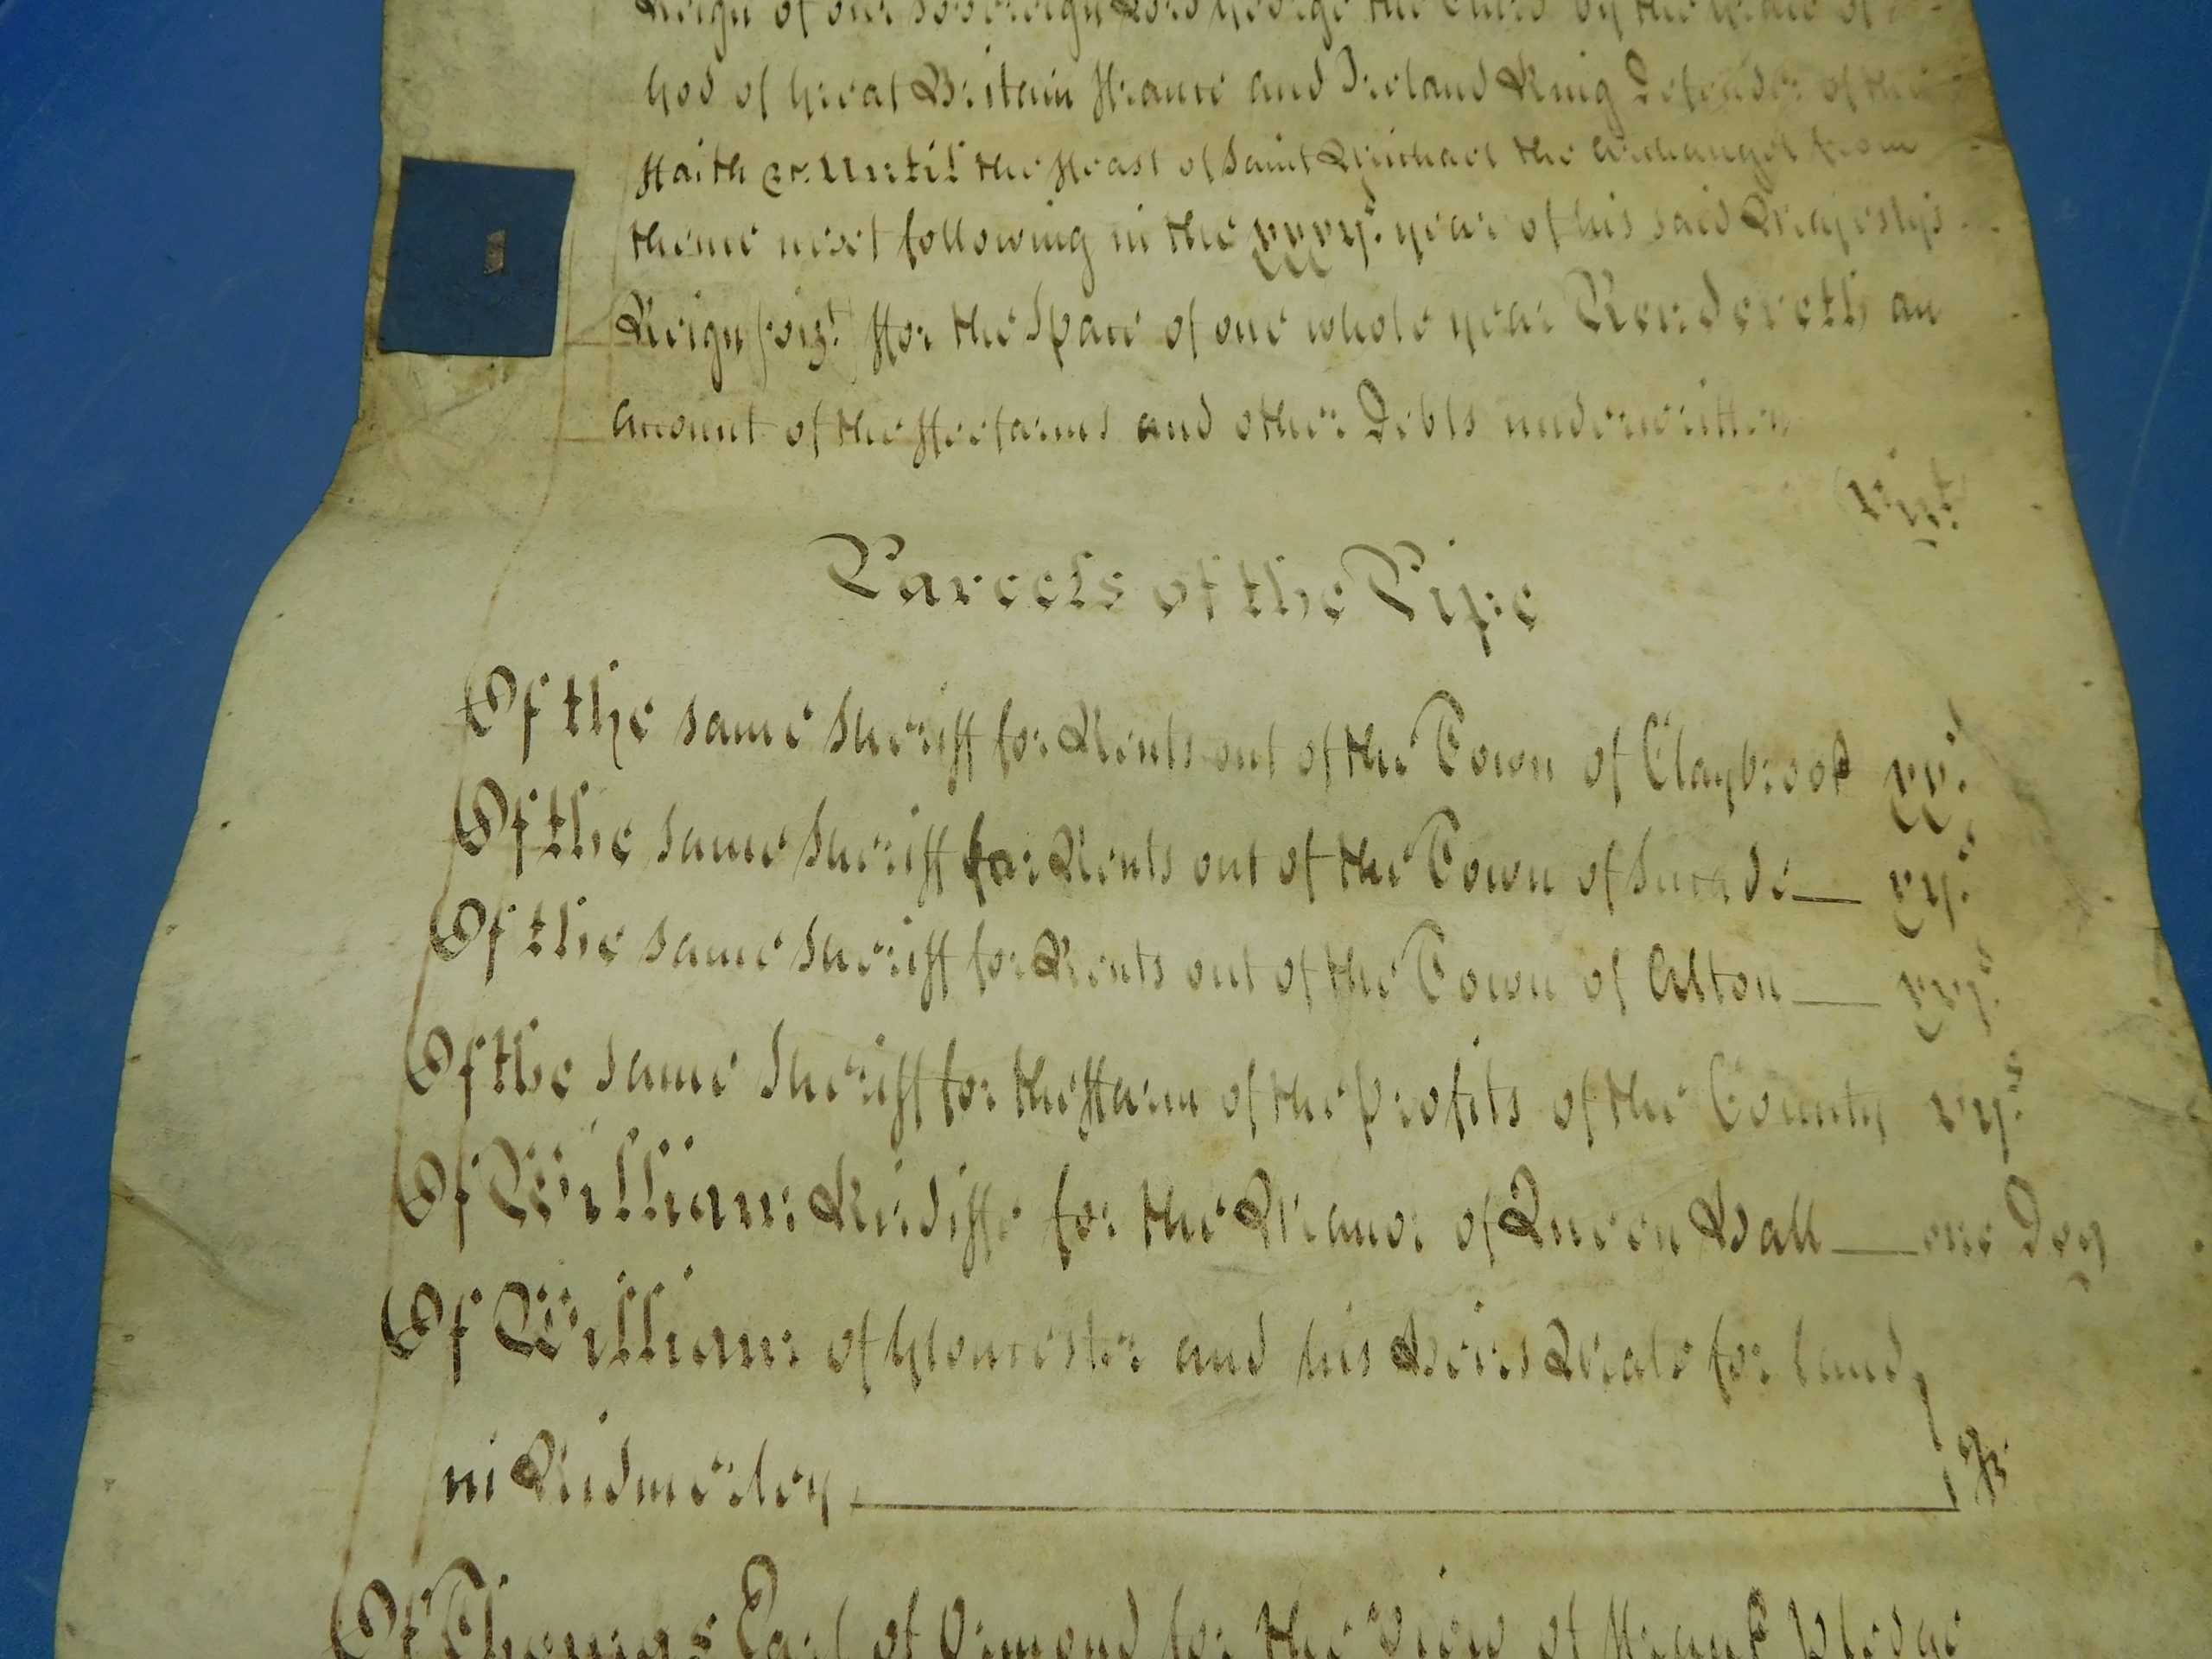 Reign of our Sovereign Lord George the Third by the Grace of
God of Great Britain France and Ireland King Defender of the
Faith &c. Until the Feast of Saint Michael the Archangel from
thence next following in the xxxij. year of his said Majestys
Reign (vizt) For the Space of one whole year Rendereth an
Account of the Feefarms and other Debts underwritten
Parcels of the Pipe
Of the same Sheriff for Rents out of the Town of Claybrook
Of the same Sheriff for Rents out of the Town of
Of the same Sheriff for Rents out of the Town of Alton
Of the same Sheriff for the Farm of the profits of the County
Of William for the Manor of Queen Hall one Dog
Of William of Gloucester and his Heirs Male for land
in Ridmerley
Of Thomas Earl of Ormond for the View of Frank Pledge